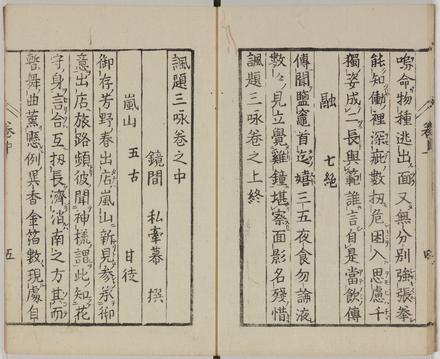 喻命物種逃出面又無分別強張拳
能知働裡深疵數扨危困入思慮千
獨姿成一長與範誰言自是當飲傳
融 七絶
傳聞鹽竈首迄嬉三五夜食勿論液
數〻見立覺雞鐘堪察面影名殘惜
諷題三咏卷之上終
諷題三咏卷之中
鏡間 私韋慕 撰
嵐山 五古 甘徒
御存芳野春出店嵐山新見參承御
意出店旅路頻彼聞神樣謂此知花
守身言合互扨長濟消南之方其而
暫舞曲薫懸例異香金箔數現處自
卷中 五